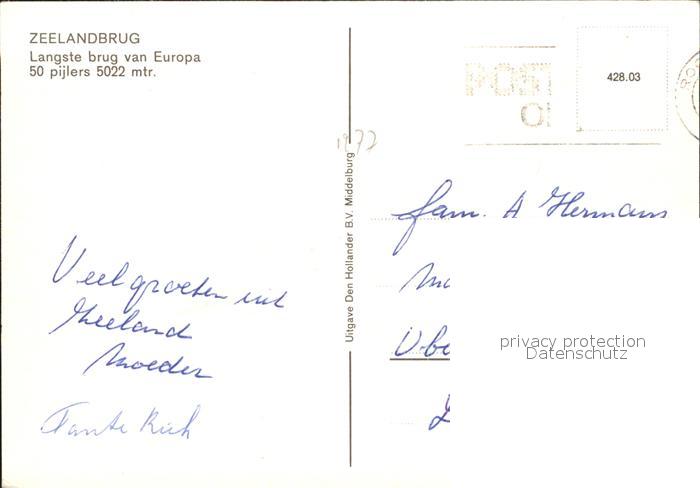 ZEELANDBRUG
Langste brug van Europa
50 pijlers 5022 mtr.
POST
428.03
1972
Uitgave Den Hollander B.V. Middelburg
fam. A Hermans
privacy protection
Datenschutz
Veel groeten uit
Zeeland
Moeder
Tante Riek